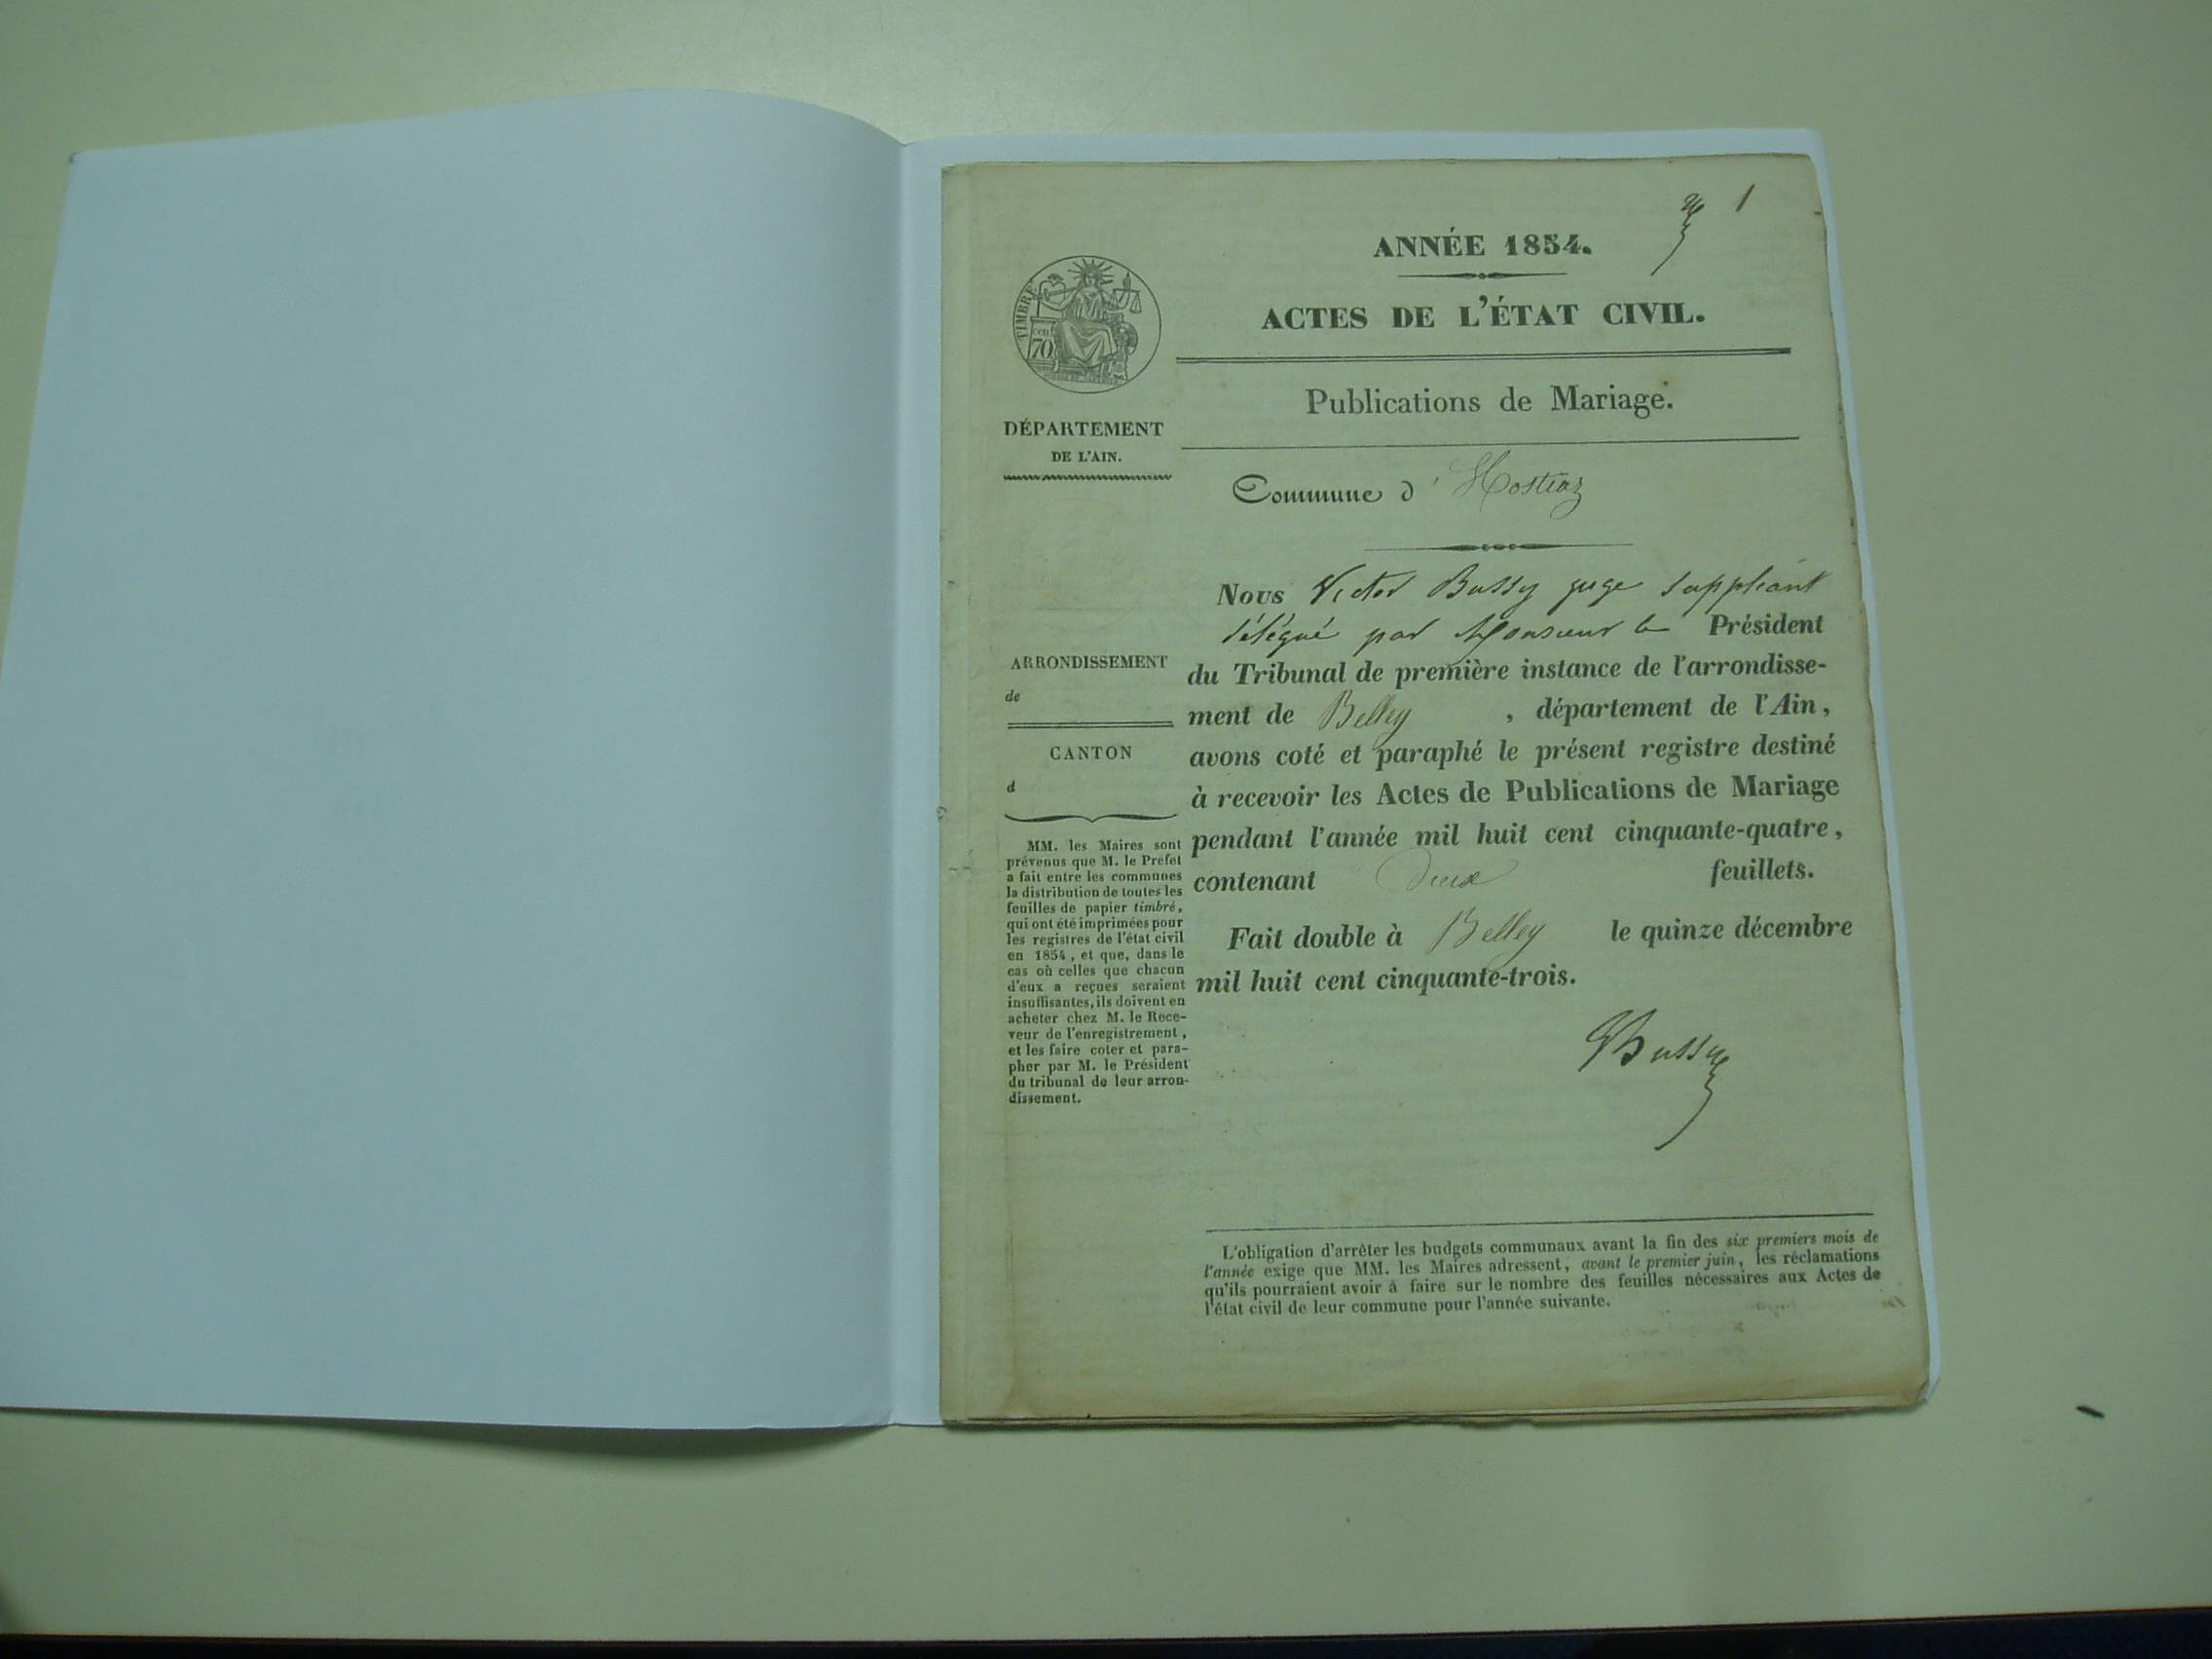 1
ANNÉE 1854.
ACTES DE L'ÉTAT CIVIL.
TIMBRE
70
Publications de Mariage.
DÉPARTEMENT
DE L'AIN.
Commune d'Hostiaz
Nous Victor Bussy juge suppléant
délégué par Monsieur le Président
du Tribunal de première instance de l'arrondisse-
ment de Belley, département de l'Ain,
avons coté et paraphé le présent registre destiné
à recevoir les Actes de Publications de Mariage
pendant l'année mil huit cent cinquante-quatre,
contenant deux feuillets.
Fait double à Belley le quinze décembre
mil huit cent cinquante-trois.
Bussy
ARRONDISSEMENT
de
CANTON
d
MM. les Maires sont
prévenus que M. le Préfet
a fait entre les communes
la distribution de toutes les
feuilles de papier timbré,
qui ont été imprimées pour
les registres de l'état civil
en 1854, et que, dans le
cas où celles que chacun
d'eux a reçues seraient
insuffisantes, ils doivent en
acheter chez M. le Rece-
veur de l'enregistrement,
et les faire coter et para-
pher par M. le Président
du tribunal de leur arron-
dissement.
L'obligation d'arrêter les budgets communaux avant la fin des six premiers mois de
l'année exige que MM. les Maires adressent, avant le premier juin, les réclamations
qu'ils pourraient avoir à faire sur le nombre des feuilles nécessaires aux Actes de
l'état civil de leur commune pour l'année suivante.